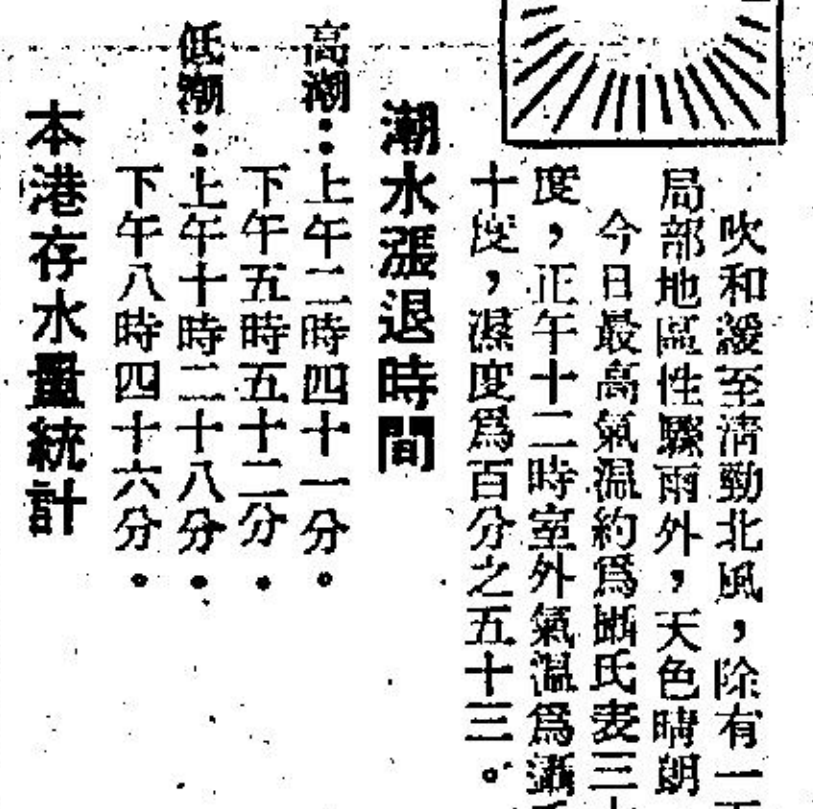 吹和緩至清勁北風，除有一
局部地區性驟雨外，天色晴朗
今日最高氣溫約爲攝氏表三十
度，正午十二時室外氣溫爲攝氏
十度，濕度爲百分之五十三。
潮水漲退時間
高潮：上午二時四十一分。
下午五時五十二分。
低潮：上午十時二十八分。
下午八時四十六分。
本港存水量統計